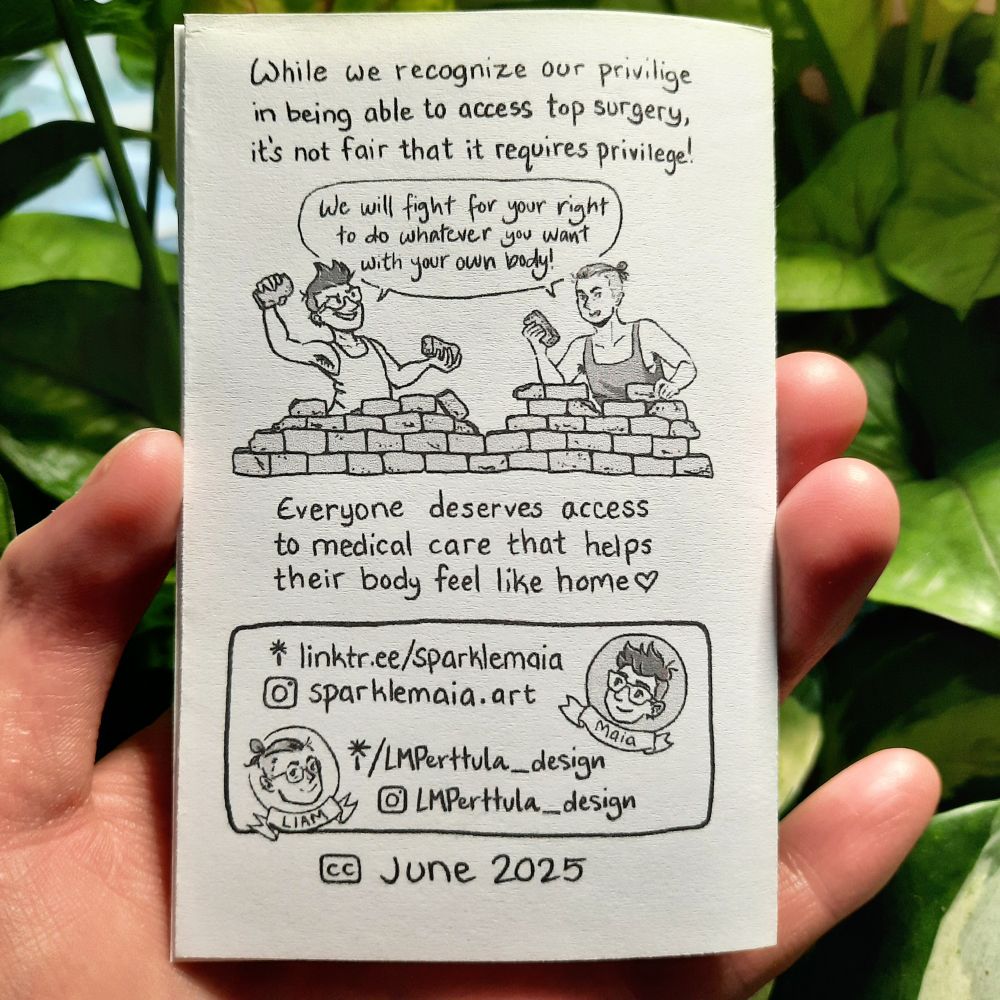 While we recognize our privilige
in being able to access top surgery,
it's not fair that it requires privilege!
We will fight for your right
to do whatever you want
with your own body!
Everyone deserves access
to medical care that helps
their body feel like home♡
linktr.ee/sparklemaia
sparklemaia.art
Maia
/LMPerttula_design
LMPerttula_design
LIAM
cc June 2025